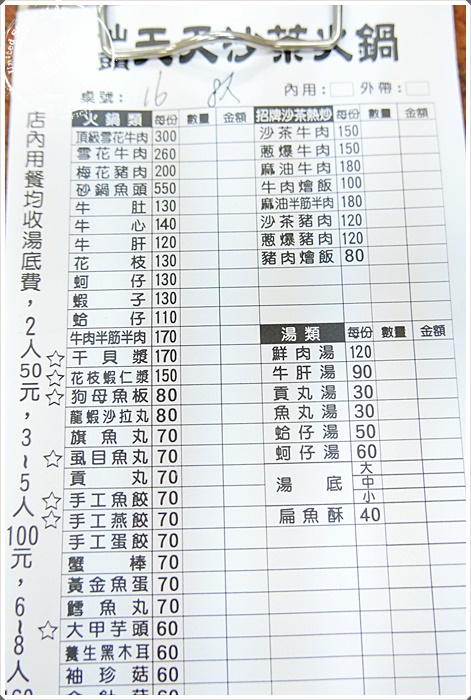 汕頭天天沙茶火鍋
桌號: 16 8人 內用: 外帶:
店內用餐均收湯底費，2人50元，3~5人100元，6~8人160
火鍋類 每份 數量 金額
頂級雪花牛肉 300
雪花牛肉 260
梅花豬肉 200
砂鍋魚頭 550
牛肚 130
牛心 140
牛肝 120
花枝 130
蚵仔 130
蝦子 130
蛤仔 110
牛肉半筋半肉 170
☆干貝漿 170
☆花枝蝦仁漿 150
☆狗母魚板 80
龍蝦沙拉丸 80
旗魚丸 70
☆虱目魚丸 70
貢丸 70
☆手工魚餃 70
☆手工燕餃 70
手工蛋餃 70
蟹棒 70
黃金魚蛋 70
鱈魚丸 70
☆大甲芋頭 60
養生黑木耳 60
袖珍菇 60
金針菇 60
招牌沙茶熱炒 每份 數量 金額
沙茶牛肉 150
蔥爆牛肉 150
麻油牛肉 180
牛肉燴飯 100
麻油半筋半肉 180
沙茶豬肉 120
蔥爆豬肉 120
豬肉燴飯 80
湯類 每份 數量 金額
鮮肉湯 120
牛肝湯 90
貢丸湯 30
魚丸湯 30
蛤仔湯 50
蚵仔湯 60
湯底 大
中
小
扁魚酥 40